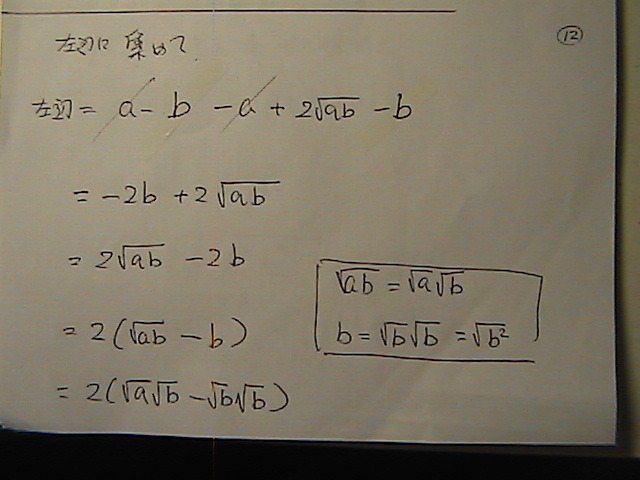 ⑫
左辺に集めて
左辺 = a - b - a + 2√ab - b
= -2b + 2√ab
= 2√ab - 2b
= 2(√ab - b)
= 2(√a√b - √b√b)
√ab = √a√b
b = √b√b = √b²